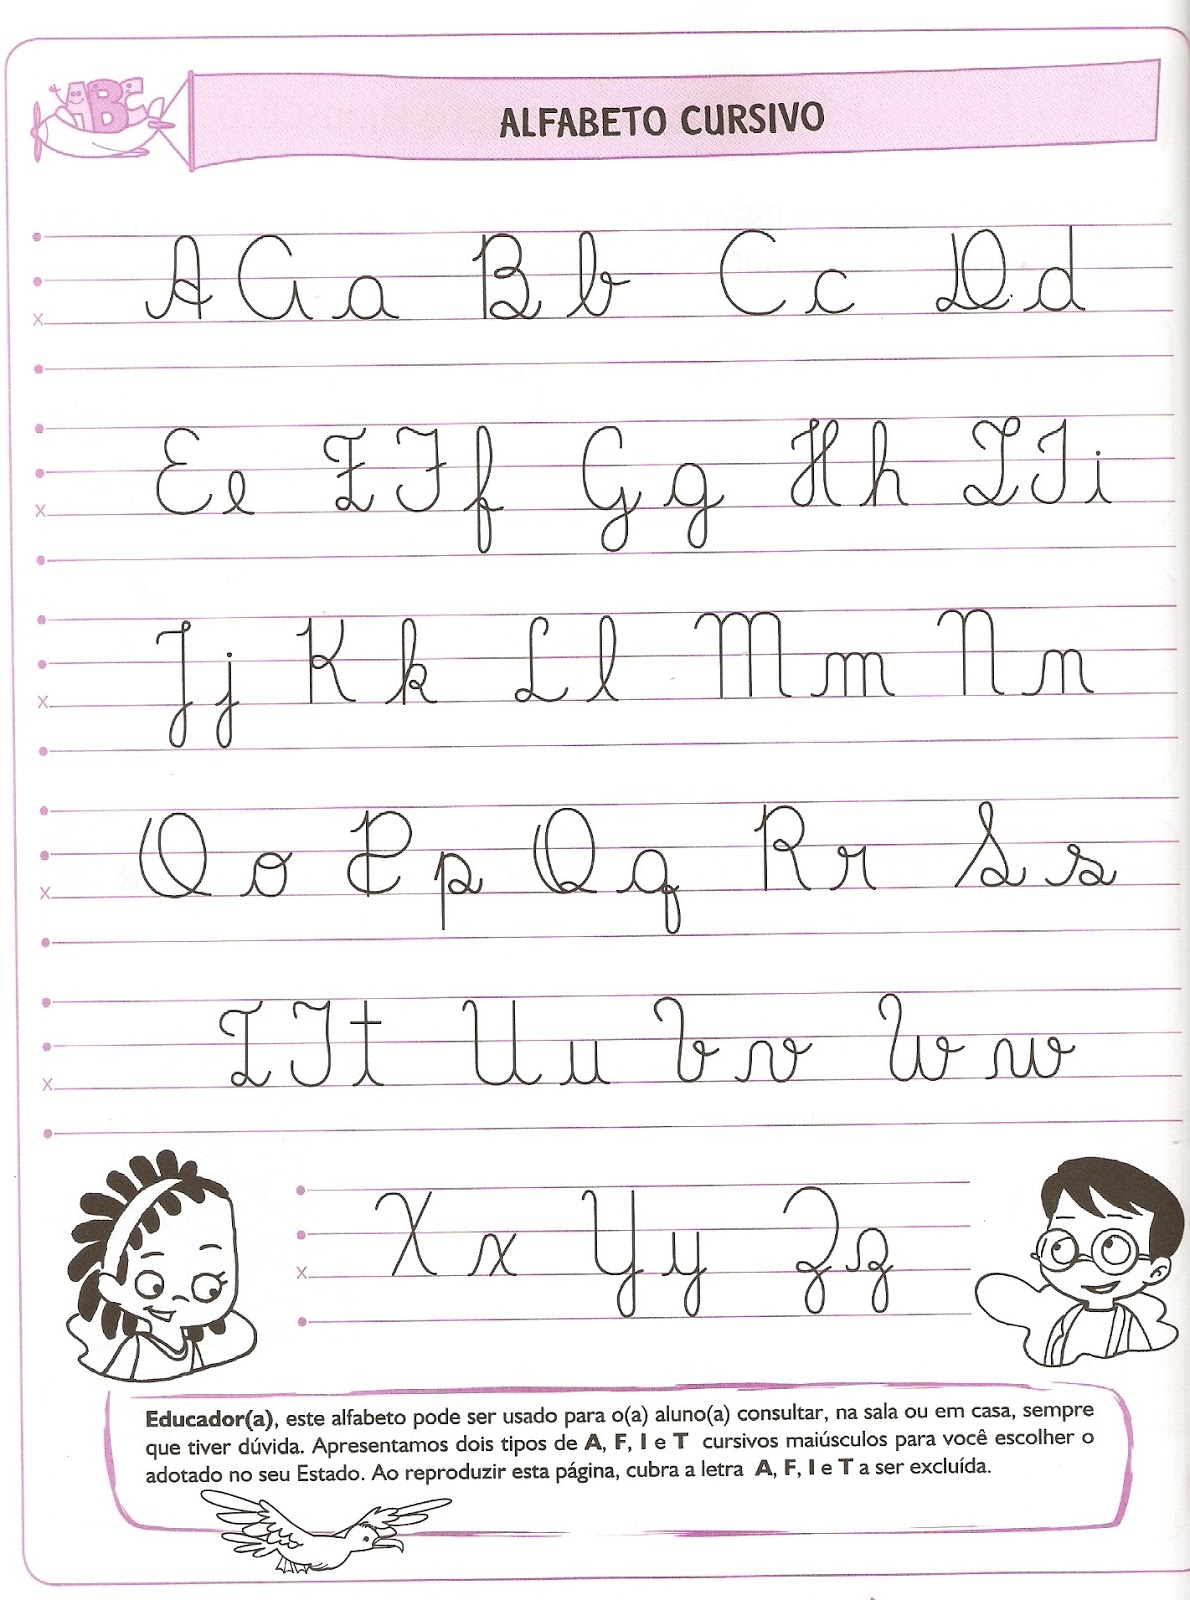 ABC
ALFABETO CURSIVO
A A a B b C c D d
E e F F f G g H h I I i
J j K k L l M m N n
O o P p Q q R r S s
T T t U u V v W w
X x Y y Z z
Educador(a), este alfabeto pode ser usado para o(a) aluno(a) consultar, na sala ou em casa, sempre
que tiver dúvida. Apresentamos dois tipos de A, F, I e T cursivos maiúsculos para você escolher o
adotado no seu Estado. Ao reproduzir esta página, cubra a letra A, F, I e T a ser excluída.